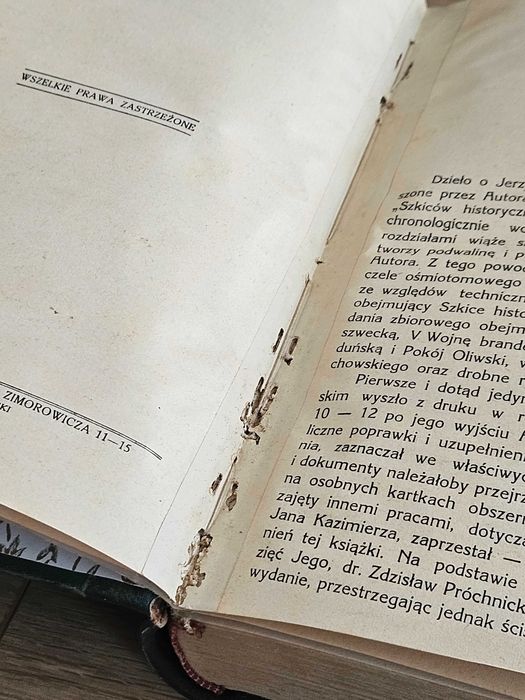 WSZELKIE PRAWA ZASTRZEŻONE
ZIMOROWICZA 11—15
Dzieło o
szone przez Autora
„Szkiców
chronologicznie
rozdziałami wiąże
tworzy podwalinę i
Autora. Z tego
czele ośmiotomowego
ze względów
obejmujący Szkice
dania zbiorowego
szwecką, V Wojnę
duńską i Pokój Oliwski,
chowskiego oraz drobne
Pierwsze i dotąd
skim wyszło z druku w
10 — 12 po jego wyjściu
liczne poprawki i
nia, zaznaczał we
i dokumenty należałoby
na osobnych kartkach
zajęty innemi pracami,
Jana Kazimierza, zaprzestał —
nień tej książki. Na podstawie
zięć Jego, dr. Zdzisław
wydanie, przestrzegając jednak